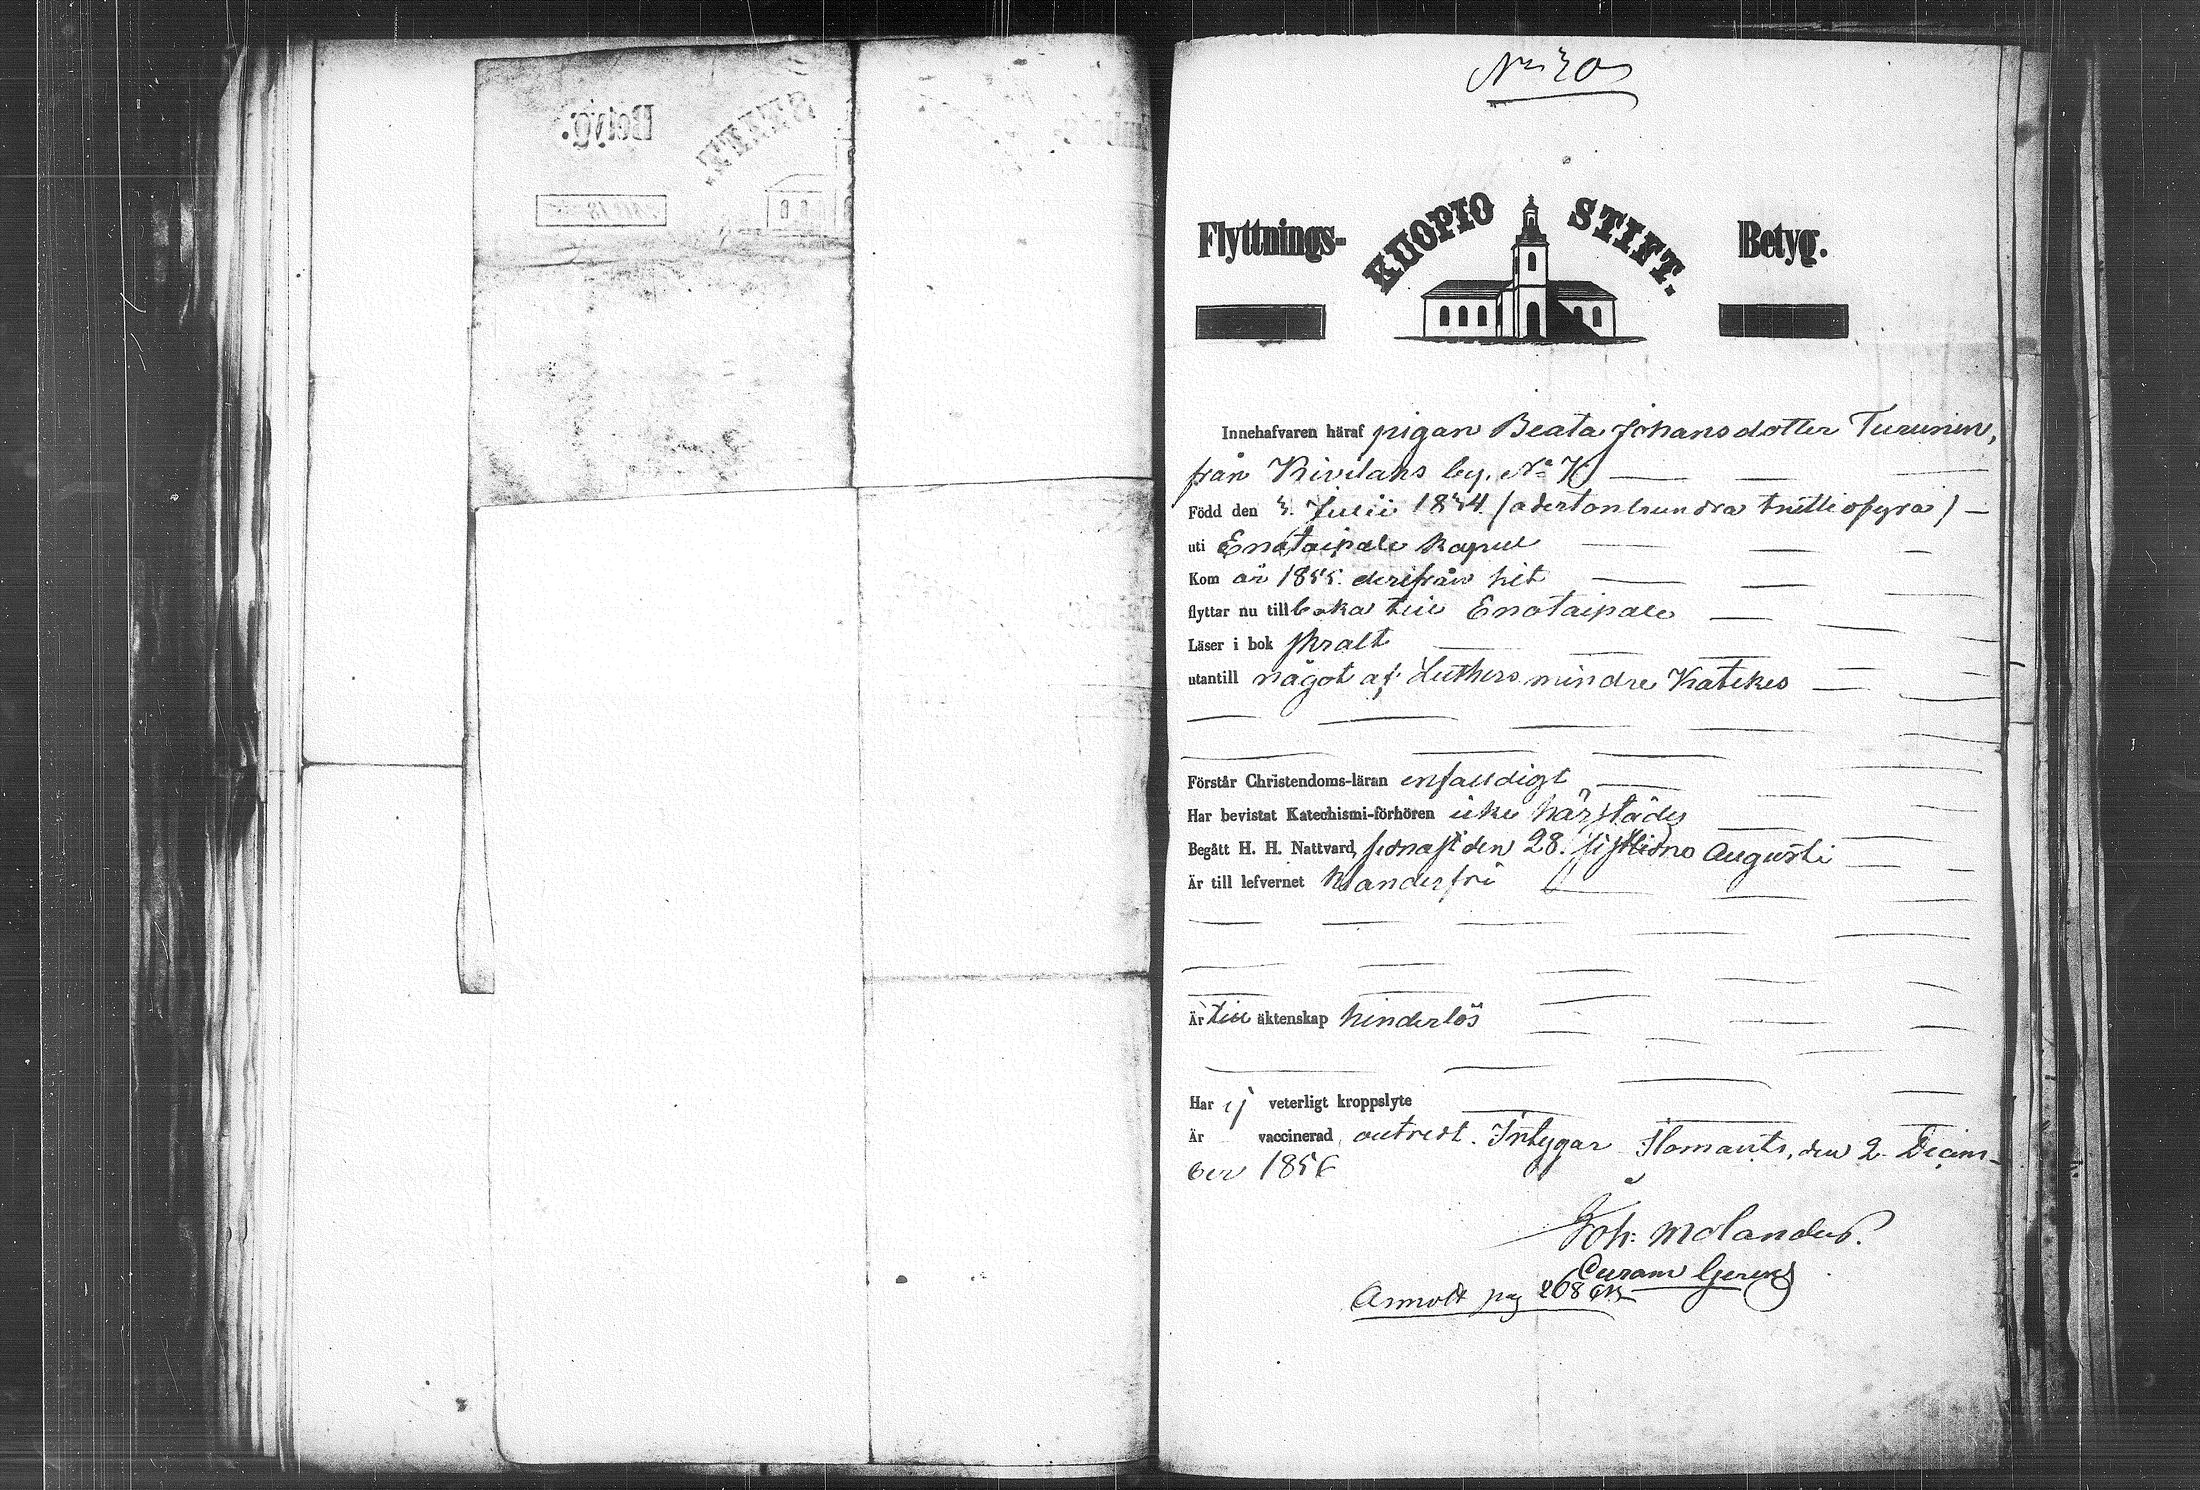 No 30
Flyttnings- KUOPIO STIFT. Betyg.
Innehafvaren häraf pigan Beata Johansdotter Turunen,
från Kivilaks by, No 7
Född den 3. Julii 1834. (adertonhundra trettiofyra) —
uti Enotaipale kapell
Kom år 1855. derifrån hit
flyttar nu tillbaka till Enotaipale
Läser i bok skralt
utantill något af Luthers mindre Katekes
Förstår Christendoms-läran enfaldigt
Har bevistat Katechismi-förhören icke härstädes
Begått H. H. Nattvard, sednast den 28. sistlidne Augusti
Är till lefvernet klanderfri
Är till äktenskap hinderlös
Har ej veterligt kroppslyte
Är vaccinerad, outredt. Intygar Ilomants, den 2. Decem-
ber 1856
Joh: Molander.
Curam Gerens
Annott pag 268